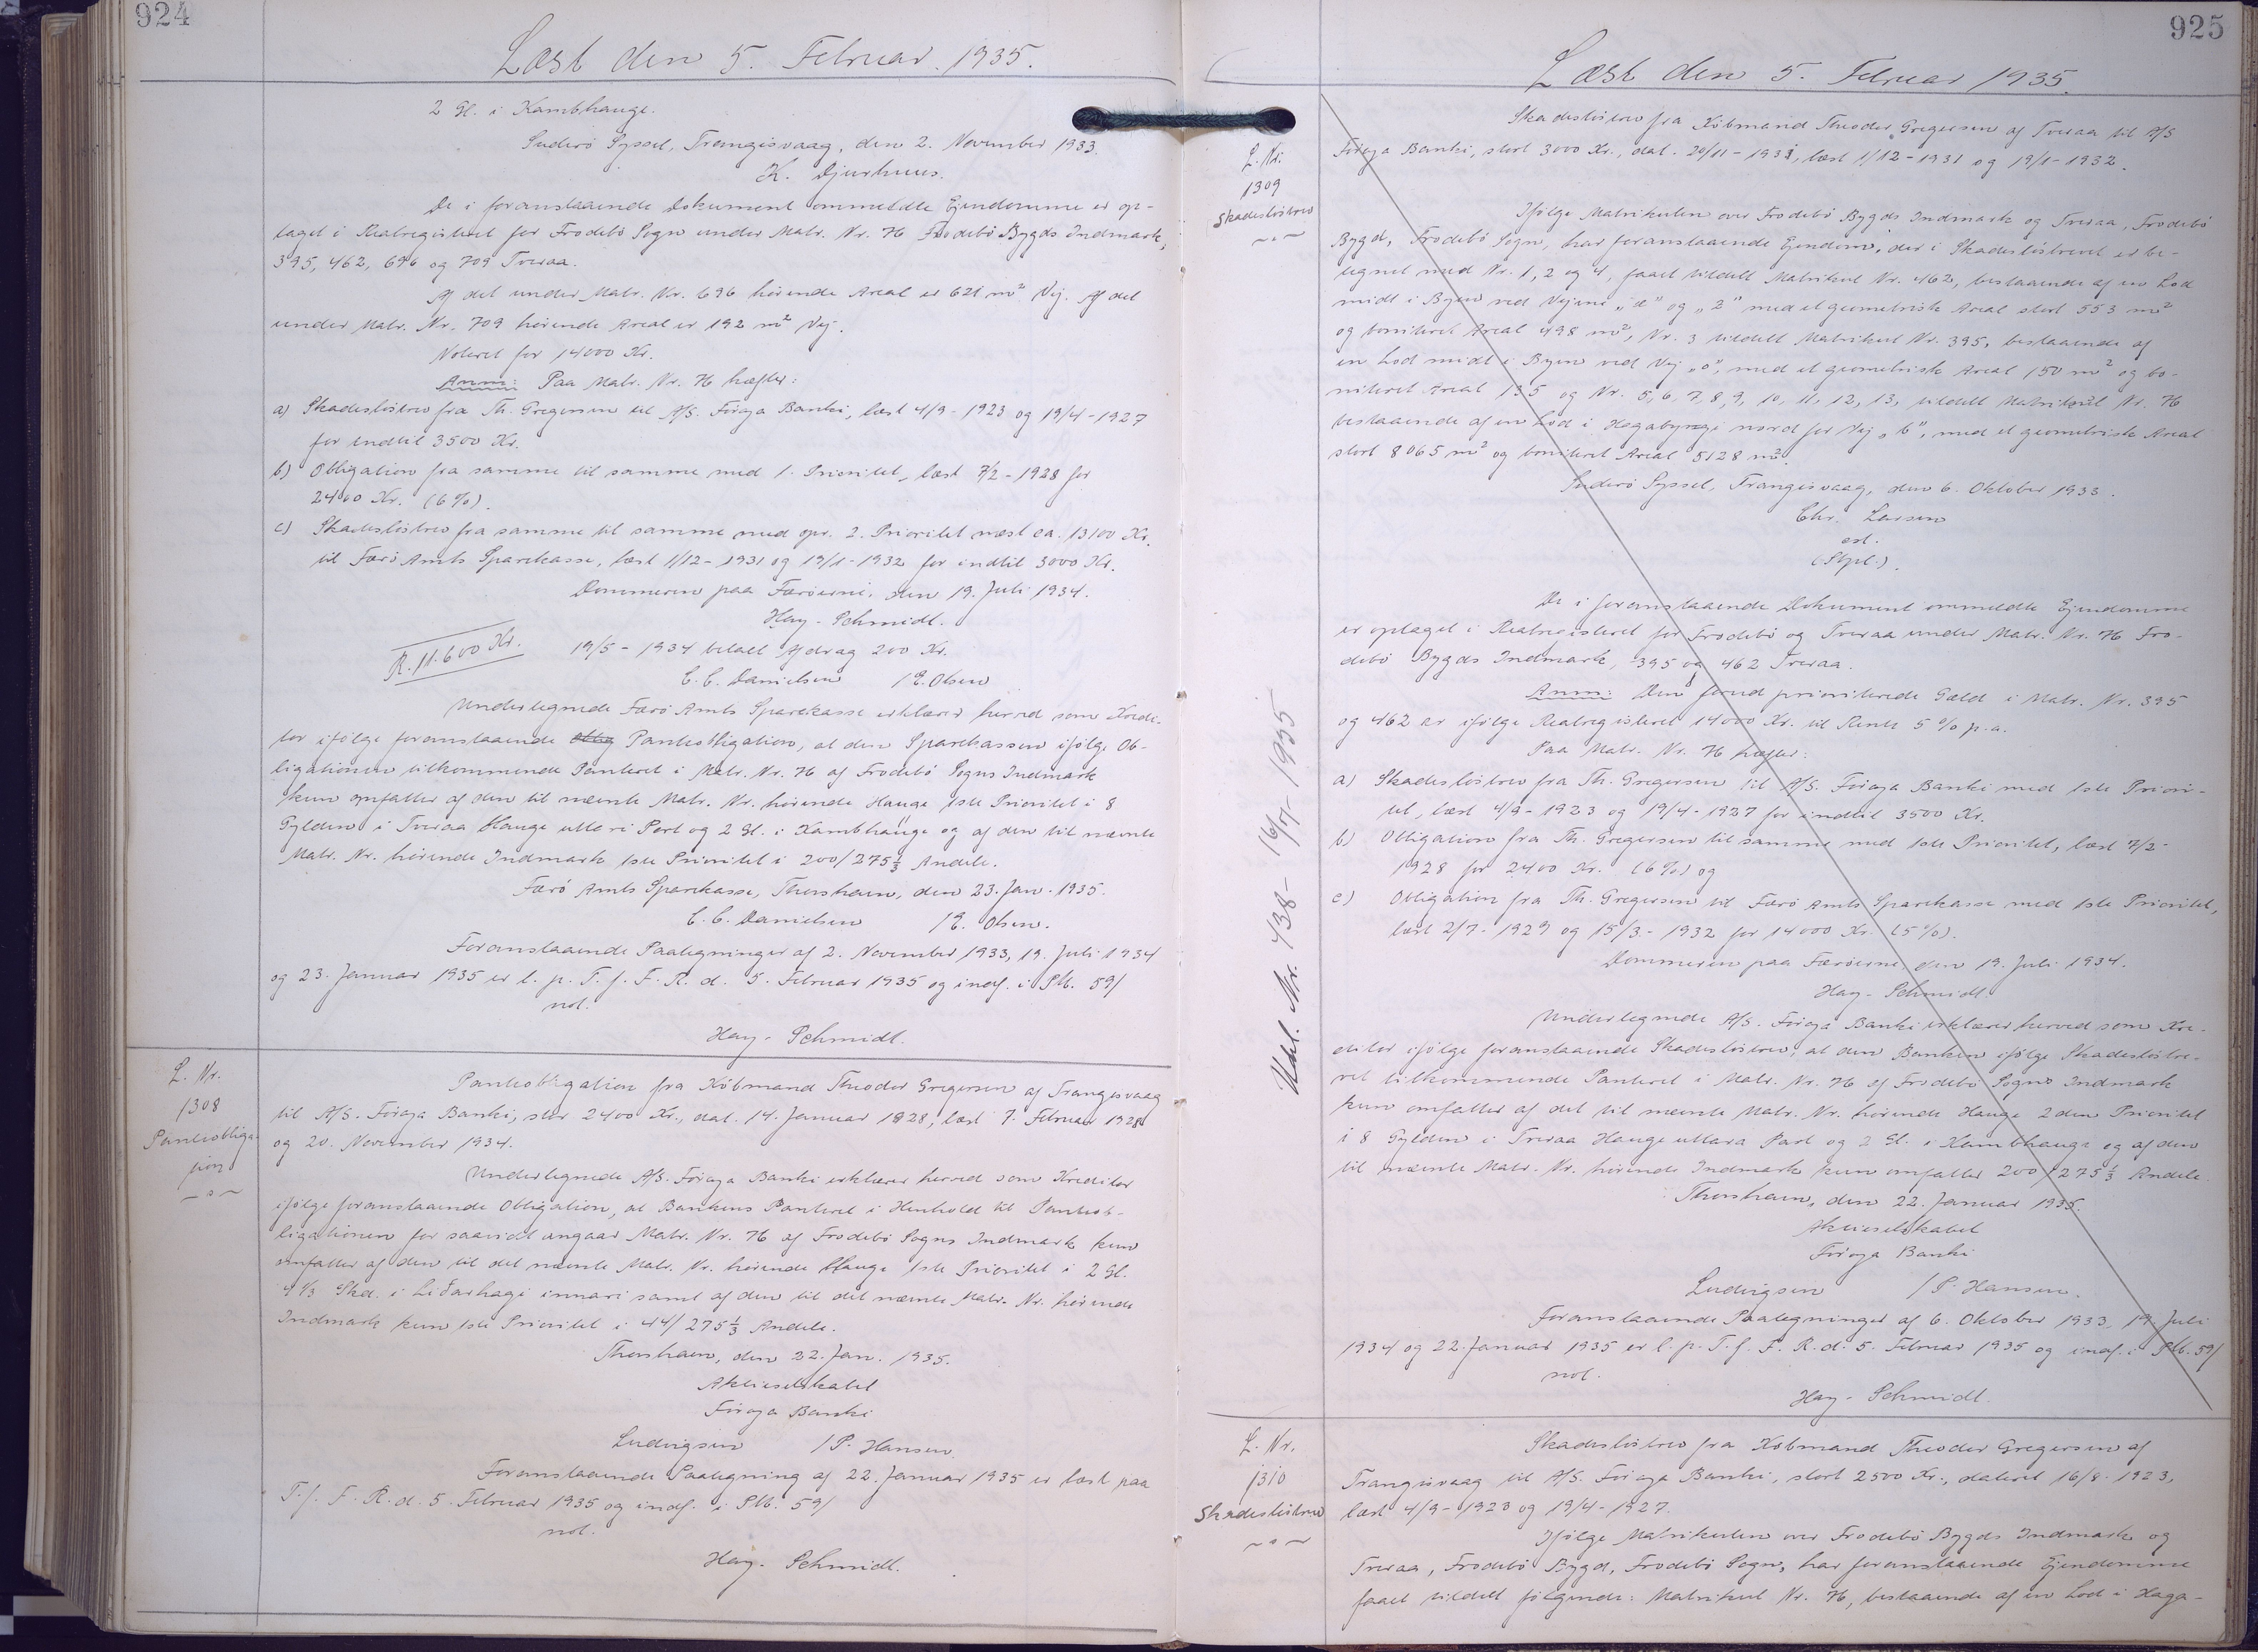 924
Læst den 5. Februar. 1935.
2 Gl. i Kambhauge.
Suderö Syssel, Trangisvaag, den 2. November 1933.
K. Djurhuus.
De i foranstaaende Dokument ommeldte Ejendomme er op-
taget i Realregistret for Frodebö Sogn under Matr. Nr. 76 Frodebö Bygds Indmark,
395, 462, 696 og 709 Tveraa.
Af det under Matr. Nr. 696 hörende Areal er 621 m² Vej. Af det
under Matr. Nr. 709 hörende Areal er 192 m² Vej.
Noteret for 14000 Kr.
Anm: Paa Matr. Nr. 76 hæfter:
a) Skadeslösbrev fra Th. Gregersen til A/S. Föroya Banki, læst 4/9 - 1923 og 19/4 - 1927
for indtil 3500 Kr.
b) Obligation fra samme til samme med 1. Prioritet, læst 7/2 - 1928 for
2400 Kr. (6%).
c) Skadeslösbrev fra samme til samme med opr. 2. Prioritet næst ca. 13100 Kr.
til Færö Amts Sparekasse, læst 1/12 - 1931 og 19/1 - 1932 for indtil 3000 Kr.
Dommeren paa Færöerne, den 19. Juli 1934.
Hay-Schmidt.
R. 11.600 Kr.
19/5 - 1934 betalt Afdrag 200 Kr.
C. C. Danielsen / E. Olsen
Undertegnede Færö Amts Sparekasse erklærer herved som Kredi-
tor ifölge foranstaaende Oblig Pantobligation, at den Sparekassen ifölge Ob-
ligationen tilkommende Panteret i Matr. Nr. 76 af Frodebö Sogns Indmark
kun omfatter af den til nævnte Matr. Nr. hörende Hauge 1ste Prioritet i 8
Gylden i Tveraa Hauge uttari Part og 2 Gl. i Kambhauge og af den til nævnte
Matr. Nr. hörende Indmark 1ste Prioritet i 200/275 1/3 Andele.
Færö Amts Sparekasse, Thorshavn, den 23. Jan. 1935.
C. C. Danielsen / E. Olsen.
Foranstaaende Paategninger af 2. November 1933, 19. Juli 1934
og 23. Januar 1935 er l. p. T. f. F. R. d. 5. Februar 1935 og indf. i Ptb. 59/
not.
Hay-Schmidt.
L. Nr.
1308
Pantobliga-
tion
Pantobligation fra Köbmand Theodor Gregersen af Trangisvaag
til A/S. Föroya Banki, stor 2400 Kr., dat. 14. Januar 1928, læst 7. Februar 1928
og 20. November 1934.
Undertegnede A/S. Föroya Banki erklærer herved som Kreditor
ifölge foranstaaende Obligation, at Bankens Panteret i Henhold til Pantob-
ligationen for saavidt angaar Matr. Nr. 76 af Frodebö Sogns Indmark kun
omfatter af den til det nævnte Matr. Nr. hörende Hauge 1ste Prioritet i 2 Gl.
4 1/3 Skd. i Liðarhagi innari samt af den til det nævnte Matr. Nr. hörende
Indmark kun 1ste Prioritet i 44/275 1/3 Andele.
Thorshavn, den 22. Jan. 1935.
Aktieselskabet
Föroya Banki
Ludvigsen / P. Hansen.
Foranstaaende Paategning af 22. Januar 1935 er læst paa
T. f. F. R. d. 5. Februar 1935 og indf. i Ptb. 59/
not.
Hay-Schmidt.
925
Læst den 5. Februar 1935.
L. Nr.
1309
Skadeslösbrev
Skadeslösbrev fra Köbmand Theodor Gregersen af Tveraa til A/S
Föroya Banki, stort 3000 Kr., dat. 20/11 - 1931, læst 1/12 - 1931 og 19/1 - 1932.
Ifölge Matrikulen over Frodebö Bygds Indmark og Tveraa, Frodebö
Bygd, Frodebö Sogn, har foranstaaende Ejendom, der i Skadeslösbrevet er be-
tegnet med Nr. 1, 2 og 4, faaet tildelt Matrikul Nr. 462, bestaaende af en Lod
midt i Byen ved Vejene „æ" og „z" med et geometrisk Areal stort 553 m²
og boniteret Areal 498 m², Nr. 3 tildelt Matrikul Nr. 395, bestaaende af
en Lod midt i Byen ved Vej „ö", med et geometrisk Areal 150 m² og bo-
niteret Areal 135 og Nr. 5, 6, 7, 8, 9, 10, 11, 12, 13, tildelt Matrikul Nr. 76
bestaaende af en Lod i Hagabyrgi nord for Vej „b", med et geometrisk Areal
stort 8065 m² og boniteret Areal 5128 m².
Suderö Syssel, Trangisvaag, den 6. Oktober 1933.
Chr. Larsen
cst.
(Stpl.).
De i foranstaaende Dokument ommeldte Ejendomme
er optaget i Realregistret for Frodebö og Tveraa under Matr. Nr. 76 Fro-
debö Bygds Indmark, 395 og 462 Tveraa.
Anm: Den forud prioriterede Gæld i Matr. Nr. 395
og 462 er ifölge Realregistret 14000 Kr. til Rente 5% p.a.
Paa Matr. Nr. 76 hæfter:
a) Skadeslösbrev fra Th. Gregersen til A/S. Föroya Banki med 1ste Priori-
tet, læst 4/9 - 1923 og 19/4 - 1927 for indtil 3500 Kr.
b) Obligation fra Th. Gregersen til samme med 1ste Prioritet, læst 7/2 -
1928 for 2400 Kr. (6%) og
c) Obligation fra Th. Gregersen til Færö Amts Sparekasse med 1ste Prioritet,
læst 2/7 - 1929 og 15/3 - 1932 for 14000 Kr. (5%).
Dommeren paa Færöerne, den 19. Juli 1934.
Hay-Schmidt.
Undertegnede A/S. Föroya Banki erklærer herved som Kre-
ditor ifölge foranstaaende Skadeslösbrev, at den Banken ifölge Skadeslösbre-
vet tilkommende Panteret i Matr. Nr. 76 af Frodebö Sogns Indmark
kun omfatter af det til nævnte Matr. Nr. hörende Hauge 2den Prioritet
i 8 Gylden i Tveraa Hauge uttara Part og 2 Gl. i Kambhauge og af den
til nævnte Matr. Nr. hörende Indmark kun omfatter 200/275 1/3 Andele.
Thorshavn, den 22. Januar 1935.
Aktieselskabet
Föroya Banki
Ludvigsen / P. Hansen.
Foranstaaende Paategninger af 6. Oktober 1933, 19. Juli
1934 og 22. Januar 1935 er l. p. T. f. F. R. d. 5. Februar 1935 og indf. i Ptb. 59/
not.
Hay-Schmidt.
Udsl. Nr. 438 - 1935
L. Nr.
1310
Skadeslösbrev
Skadeslösbrev fra Köbmand Theodor Gregersen af
Trangisvaag til A/S. Föroya Banki, stort 2500 Kr., dateret 16/8 - 1923,
læst 4/9 - 1923 og 19/4 - 1927.
Ifölge Matrikulen over Frodebö Bygds Indmark og
Tveraa, Frodebö Bygd, Frodebö Sogn, har foranstaaende Ejendomme
faaet tildelt fölgende: Matrikul Nr. 76, bestaaende af en Lod i Haga-